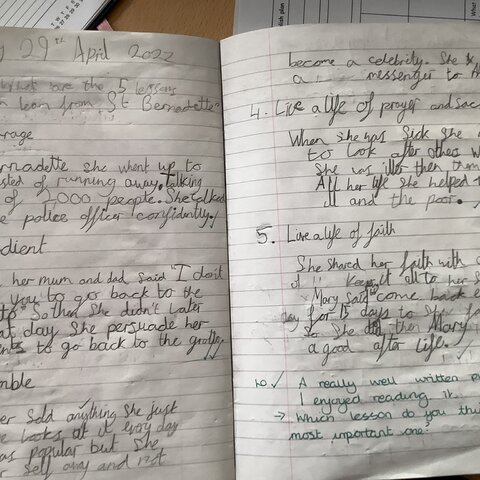 29th April 2022
What are the 5 lessons
learn from St Bernadette"
rage
ernadette she whent up to
sted of running away. talking
of 2,000 people. She talked
police officer confidintly.
dient
her mum and dad said "I don't
you to go back to the
So then she didn't Later
at day she persuade her
ents to go back to the grotto.
mble
er sold anything she just
looks at it every day
as popular but she
er self away and not
become a celebrity. She
a messenger to
4. Live a life of prayer and sac
When she was sick she
to look after others
She was iller then them
All her life she helped
ill and the poor.
5. Live a life of faith
She shared her faith with
of Keep it all to her
Mary said "come back
for 15 days to
So she did then Mary
a good after life.
A really well written
I enjoyed reading it.
→ Which lesson do you thi
most important one?